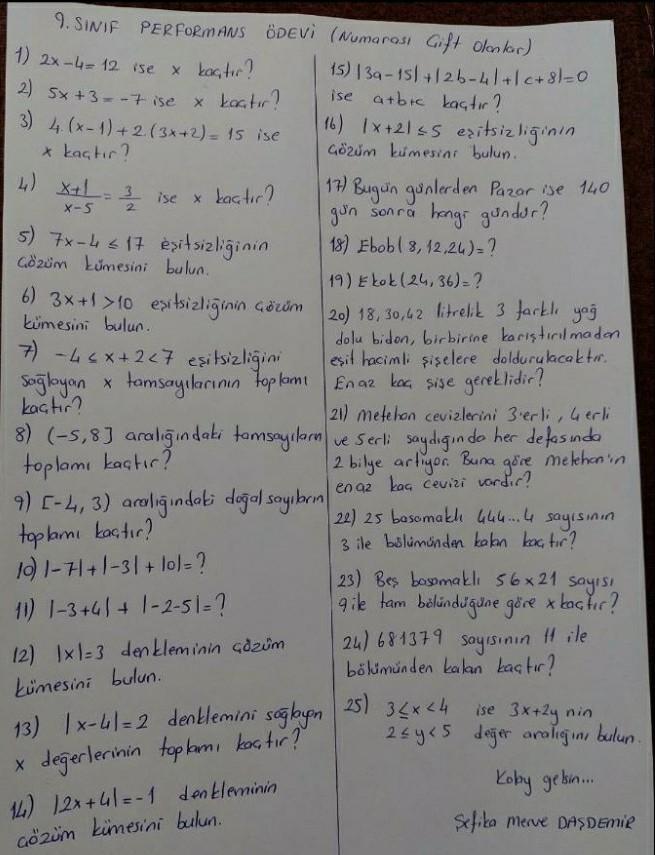 9. SINIF PERFORMANS ÖDEVİ (Numarası Çift Olanlar)
1) 2x-4=12 ise x kaçtır?
2) 5x+3=-7 ise x kaçtır?
3) 4.(x-1)+2.(3x+2)=15 ise
x kaçtır?
4) x+1/x-5 = 3/2 ise x kaçtır?
5) 7x-4 ≤ 17 eşitsizliğinin
çözüm kümesini bulun.
6) 3x+1>10 eşitsizliğinin çözüm
kümesini bulun.
7) -4 ≤ x+2<7 eşitsizliğini
sağlayan x tamsayılarının toplamı
kaçtır?
8) (-5,8] aralığındaki tamsayıların
toplamı kaçtır?
9) [-4, 3) aralığındaki doğal sayıların
toplamı kaçtır?
10) |-7|+|-3|+|0|=?
11) |-3+4| + |-2-5|=?
12) |x|=3 denkleminin çözüm
kümesini bulun.
13) |x-4|=2 denklemini sağlayan
x değerlerinin toplamı kaçtır?
14) |2x+4|=-1 denkleminin
çözüm kümesini bulun.
15) |3a-15|+|2b-4|+|c+8|=0
ise a+b+c kaçtır?
16) |x+2| ≤ 5 eşitsizliğinin
çözüm kümesini bulun.
17) Bugün günlerden Pazar ise 140
gün sonra hangi gündür?
18) Ebob(8,12,24)=?
19) Ekok(24,36)=?
20) 18,30,42 litrelik 3 farklı yağ
dolu bidon, birbirine karıştırılmadan
eşit hacimli şişelere doldurulacaktır.
En az kaç şişe gereklidir?
21) Metehan cevizlerini 3'erli, 4 erli
ve 5erli saydığında her defasında
2 bilye artıyor. Buna göre Metehan'ın
en az kaç cevizi vardır?
22) 25 basamaklı 444...4 sayısının
3 ile bölümünden kalan kaçtır?
23) Beş basamaklı 56x21 sayısı
9 ile tam bölündüğüne göre x kaçtır?
24) 681379 sayısının 11 ile
bölümünden kalan kaçtır?
25) 3≤x<4 ise 3x+2y nin
2≤y<5 değer aralığını bulun.
Kolay gelsin...
Şefika Merve DAŞDEMİR